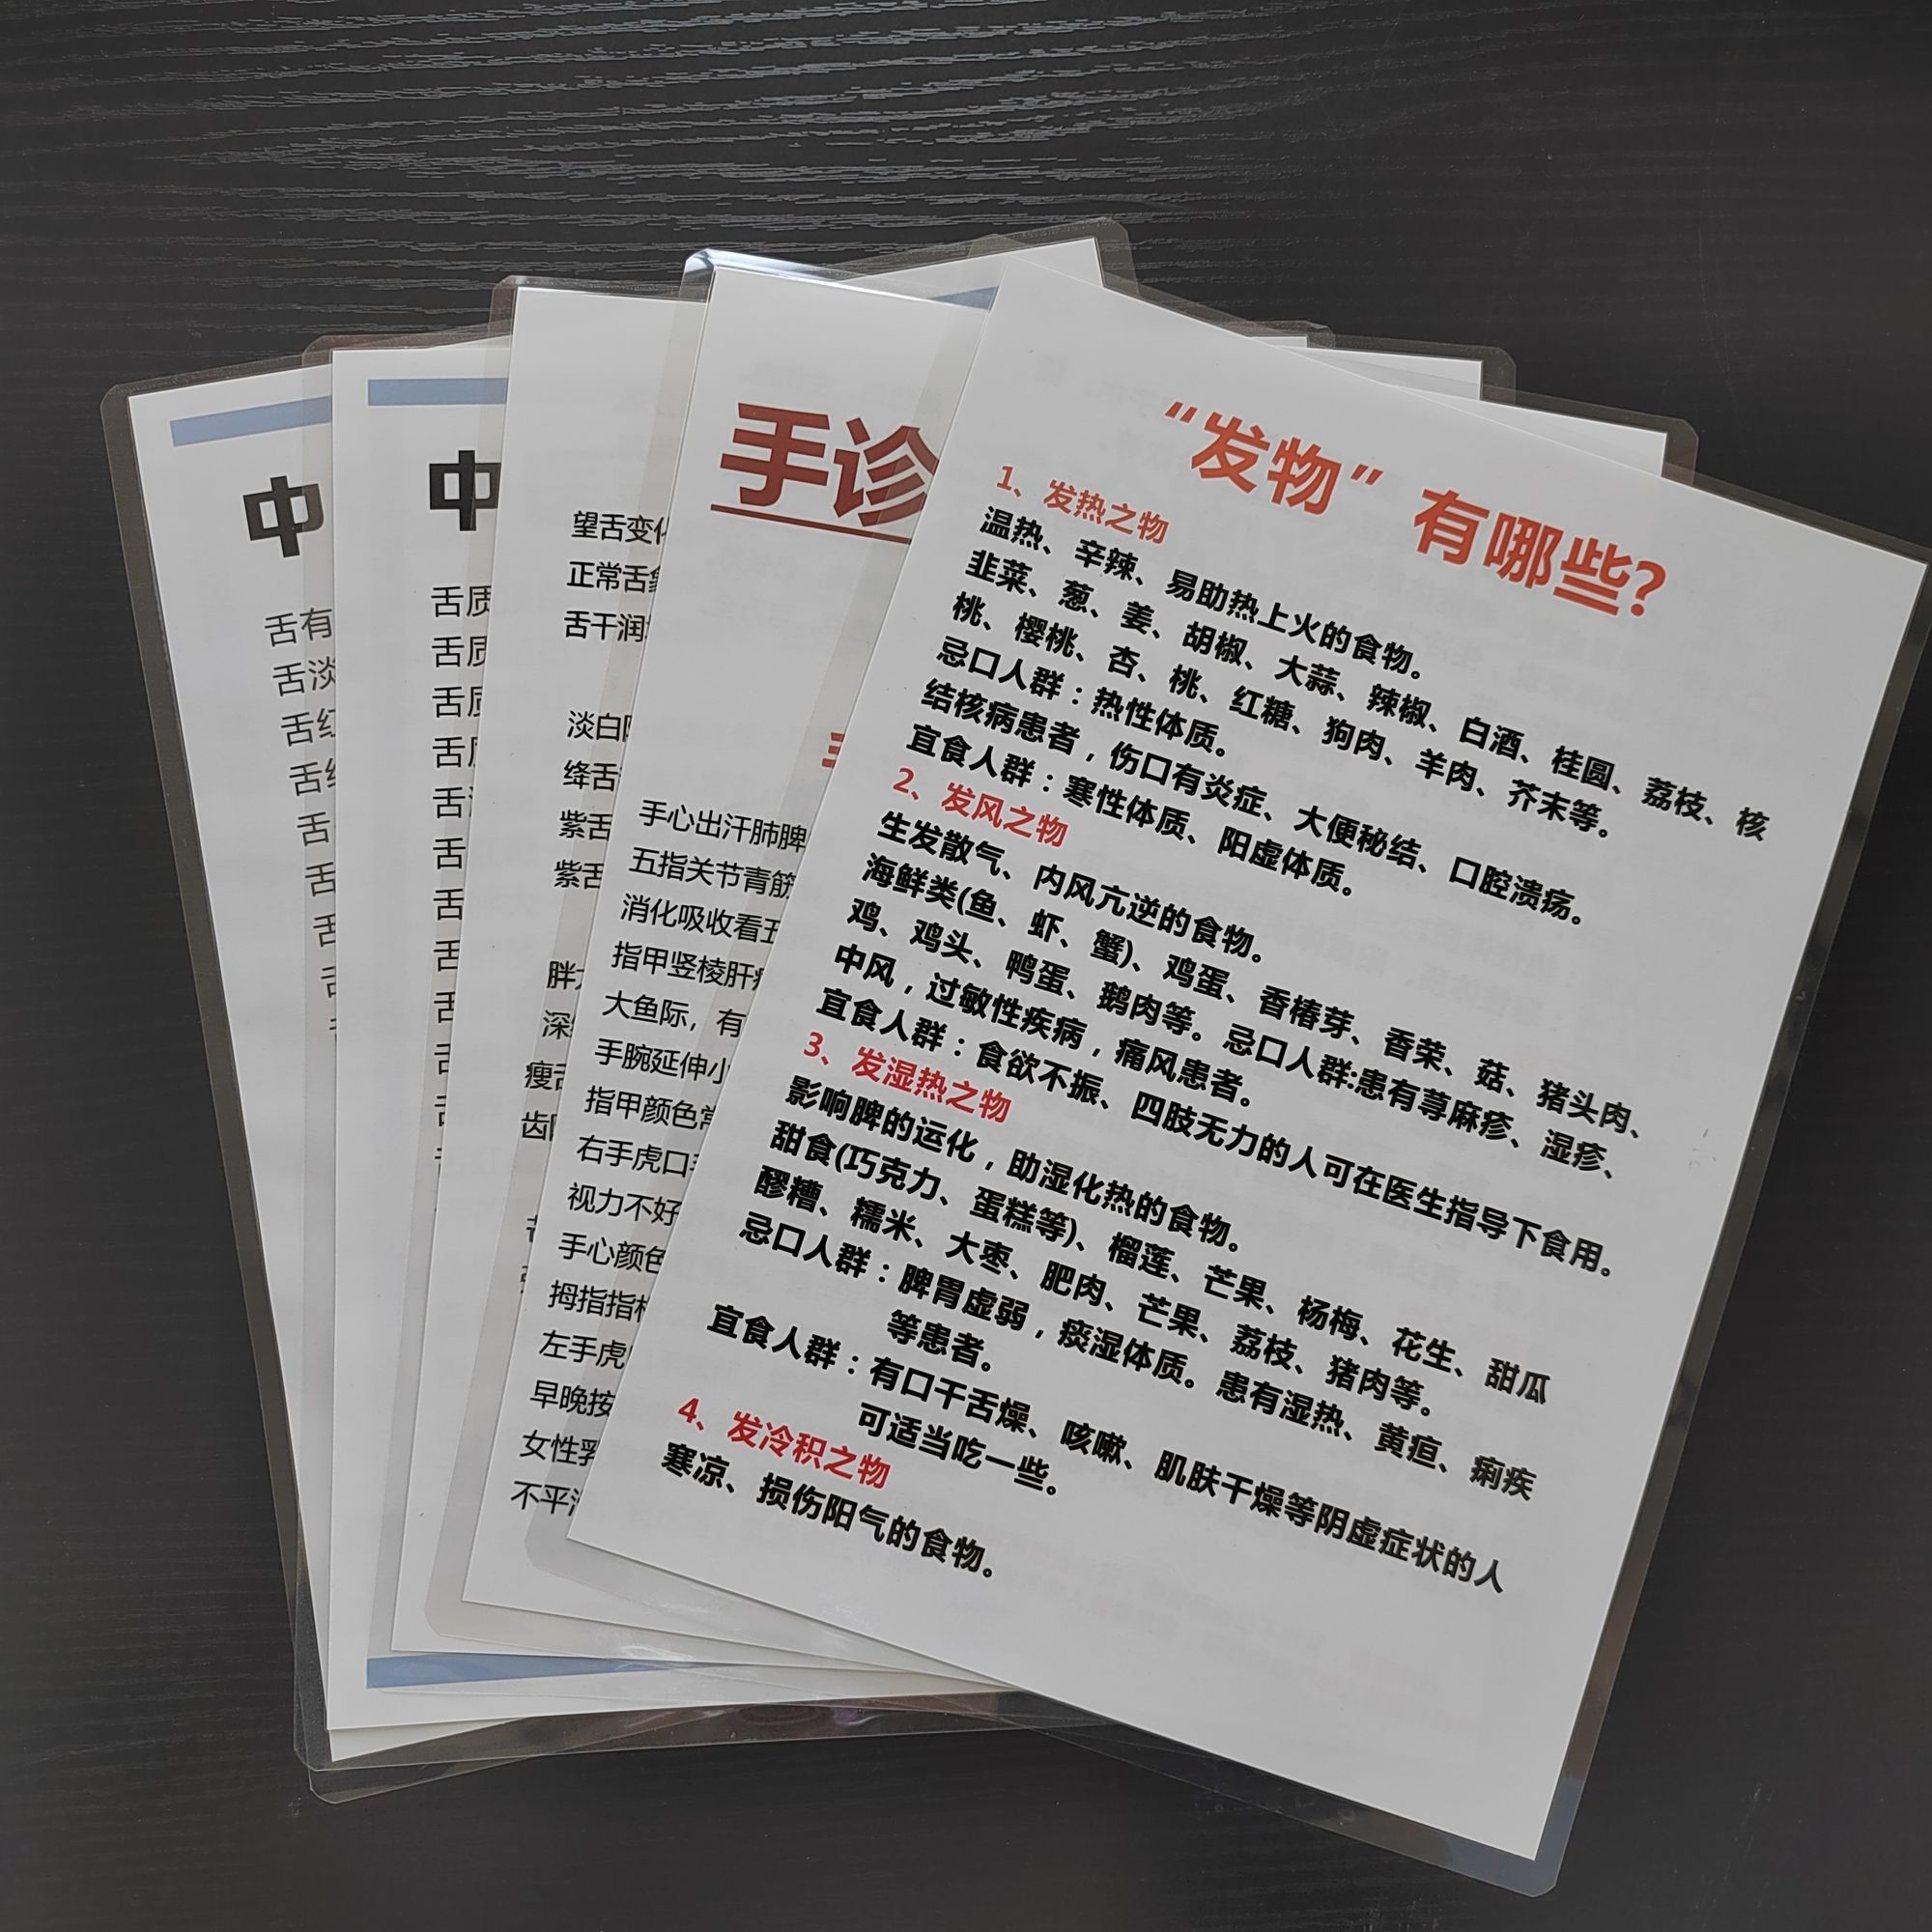 中
舌有
舌淡
舌红
舌
舌
舌
舌
中
舌质
舌质
舌质
舌质
舌
舌
舌
舌
舌
舌
望舌变化
正常舌象
舌干润
淡白
绛舌
紫舌
紫舌
胖
深
瘦舌
齿
手诊
手心出汗肺脾
五指关节青筋
消化吸收看五
指甲竖棱肝
大鱼际，有
手腕延伸小
指甲颜色常
右手虎口
视力不好
手心颜色
拇指指
左手虎
早晚按
女性乳
不平
“发物”有哪些?
1、发热之物
温热、辛辣、易助热上火的食物。
韭菜、葱、姜、胡椒、大蒜、辣椒、白酒、桂圆、荔枝、核
桃、樱桃、杏、桃、红糖、狗肉、羊肉、芥末等。
忌口人群：热性体质。
结核病患者，伤口有炎症、大便秘结、口腔溃疡。
宜食人群：寒性体质、阳虚体质。
2、发风之物
生发散气、内风亢逆的食物。
海鲜类(鱼、虾、蟹)、鸡蛋、香椿芽、香荣、菇、猪头肉、
鸡、鸡头、鸭蛋、鹅肉等。忌口人群:患有荨麻疹、湿疹、
中风，过敏性疾病，痛风患者。
宜食人群：食欲不振、四肢无力的人可在医生指导下食用。
3、发湿热之物
影响脾的运化，助湿化热的食物。
甜食(巧克力、蛋糕等)、榴莲、芒果、杨梅、花生、甜瓜
醪糟、糯米、大枣、肥肉、芒果、荔枝、猪肉等。
忌口人群：脾胃虚弱，痰湿体质。患有湿热、黄疸、痢疾
等患者。
宜食人群：有口干舌燥、咳嗽、肌肤干燥等阴虚症状的人
可适当吃一些。
4、发冷积之物
寒凉、损伤阳气的食物。